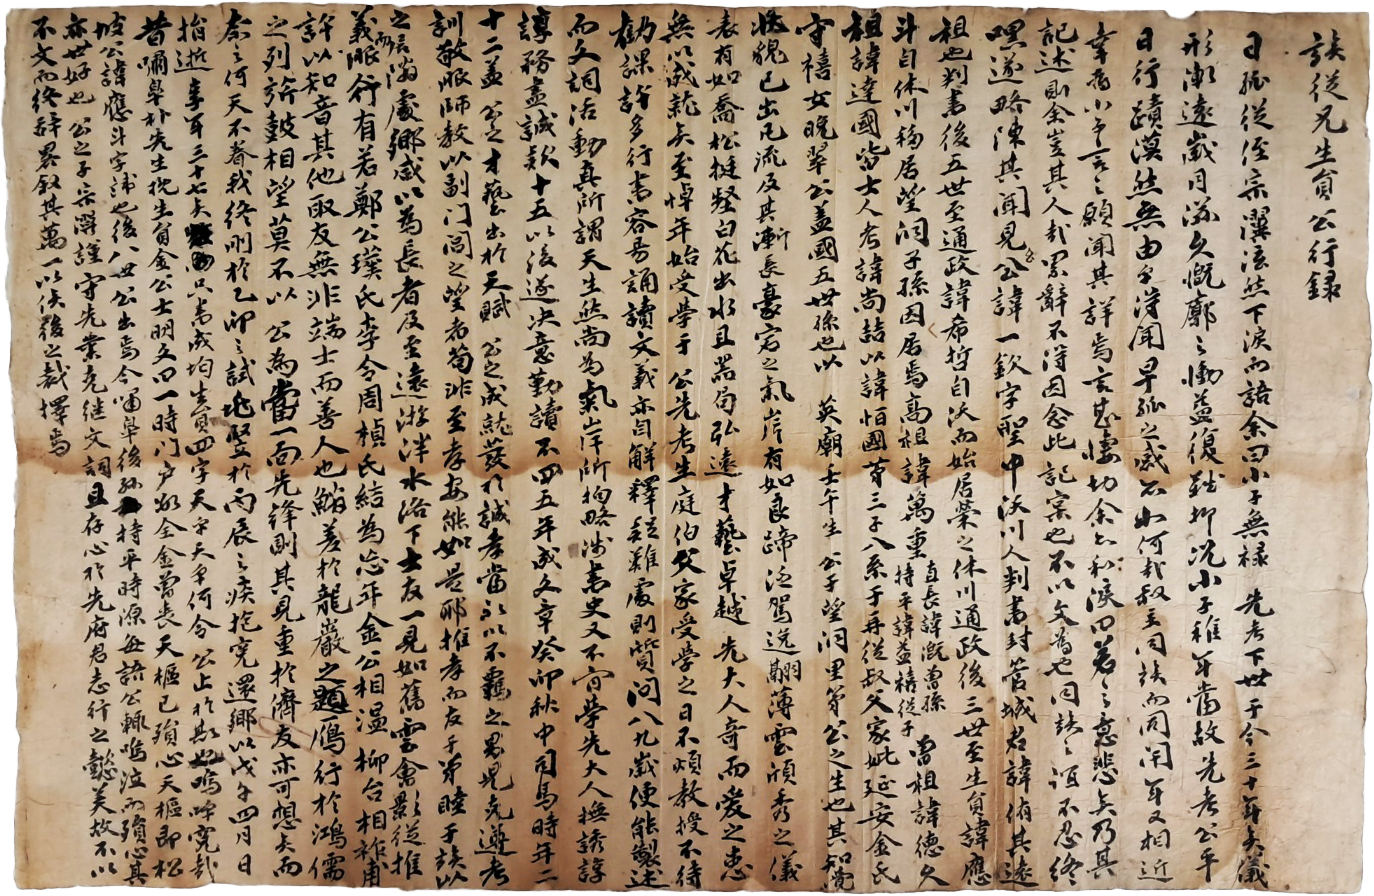 族從兄生貢公行錄
日孤從侄宗潩泫然下淚而語余曰小子無祿 先考下世于今三十年矣儀
形漸遠歲月滋久慨廓之慟益復難抑况小子稚年當故先考公平
日行蹟漠然無由乎得聞早孤之感不如何哉叔主同族而同閈年又相近
幸爲小子言之願聞其詳焉言甚悽切余亦和淚曰若之意悲矣乃其
記述則余豈其人哉累辭不得因念此記実也不以文爲也同族之誼不忍終
嘿遂略陳其聞見公諱一欽字聖中沃川人判書封管城君諱侑其遠
祖也判書後五世至通政諱希哲自沃而始居榮之休川通政後三世至生員諱應
斗自休川移居望洞子孫因居焉高祖諱萬重持平諱益禧從子 曾祖諱德久直長諱漑曾孫
祖諱達國皆士人考諱尚喆以諱怕國第三子入系于再從叔父家妣延安金氏
守禧女晩翠公蓋國五世孫也以 英廟壬午生公于望洞里第公之生也其知覺
狀貌已出凡流及其漸長豪宕之氣岸有如良蹄泛駕逸翮薄雲頎秀之儀
表有如喬松挺壑白花出水且器局弘遠才藝卓越 先大人奇而愛之恚
無以成就矣至悼年始受學于 公先考生庭伯父家受學之日不煩教授不待
勸課許多行書容易誦讀文義亦自解釋疑難處則質問八九歲便能製述
而文詞活動真所謂天生然尚為氣岸所拘略涉書史又不肯學先大人撫誘諄
諄務盡誠款十五以後遂決意勤讀不四五年成文章癸卯秋中司馬時年二
十二蓋 公之才藝出於天賦 公之成就茲於誠孝當初以不羈之累規克遵考
訓敬服師教以副门閭之望者苟非至孝安能如是耶推孝而友于弟睦于族以
之居滿處鄉咸以為長者及至遠游泮水洛下士友一見如舊雲會影從推
義服行有若鄭公璞氏李令周楨氏結為忘年金公相溫柳台相祚甫
許以知音其他取友無非端士而善人也鮹差於龍巖之題鴈行於鴻儒
之列旂鼓相望莫不以 公為當一面先鋒則其見重於儕友亦可想矣而
奈之何天不眷我終刖於乙卯之試兆竪於丙辰之疾抱寃還鄉以戊午四月日
捐逝享年三十七矣只書成均生員四字天乎天乎何令 公止於斯也嗚呼寃哉
昔嘯皐朴先生挽生員金公士明文曰一時门户欲全金曾表天樞已殞心天樞即松
坡公諱應斗字諱也後八世公出焉今嘯皐後孫持平時源每語公輒嗚泣而殞心其
亦世好也 公之子宗潩謹守先業克繼文詞且存心於先府君志行之懿美故不以
不文而終辭畧叙其萬一以俟後之裁擇焉